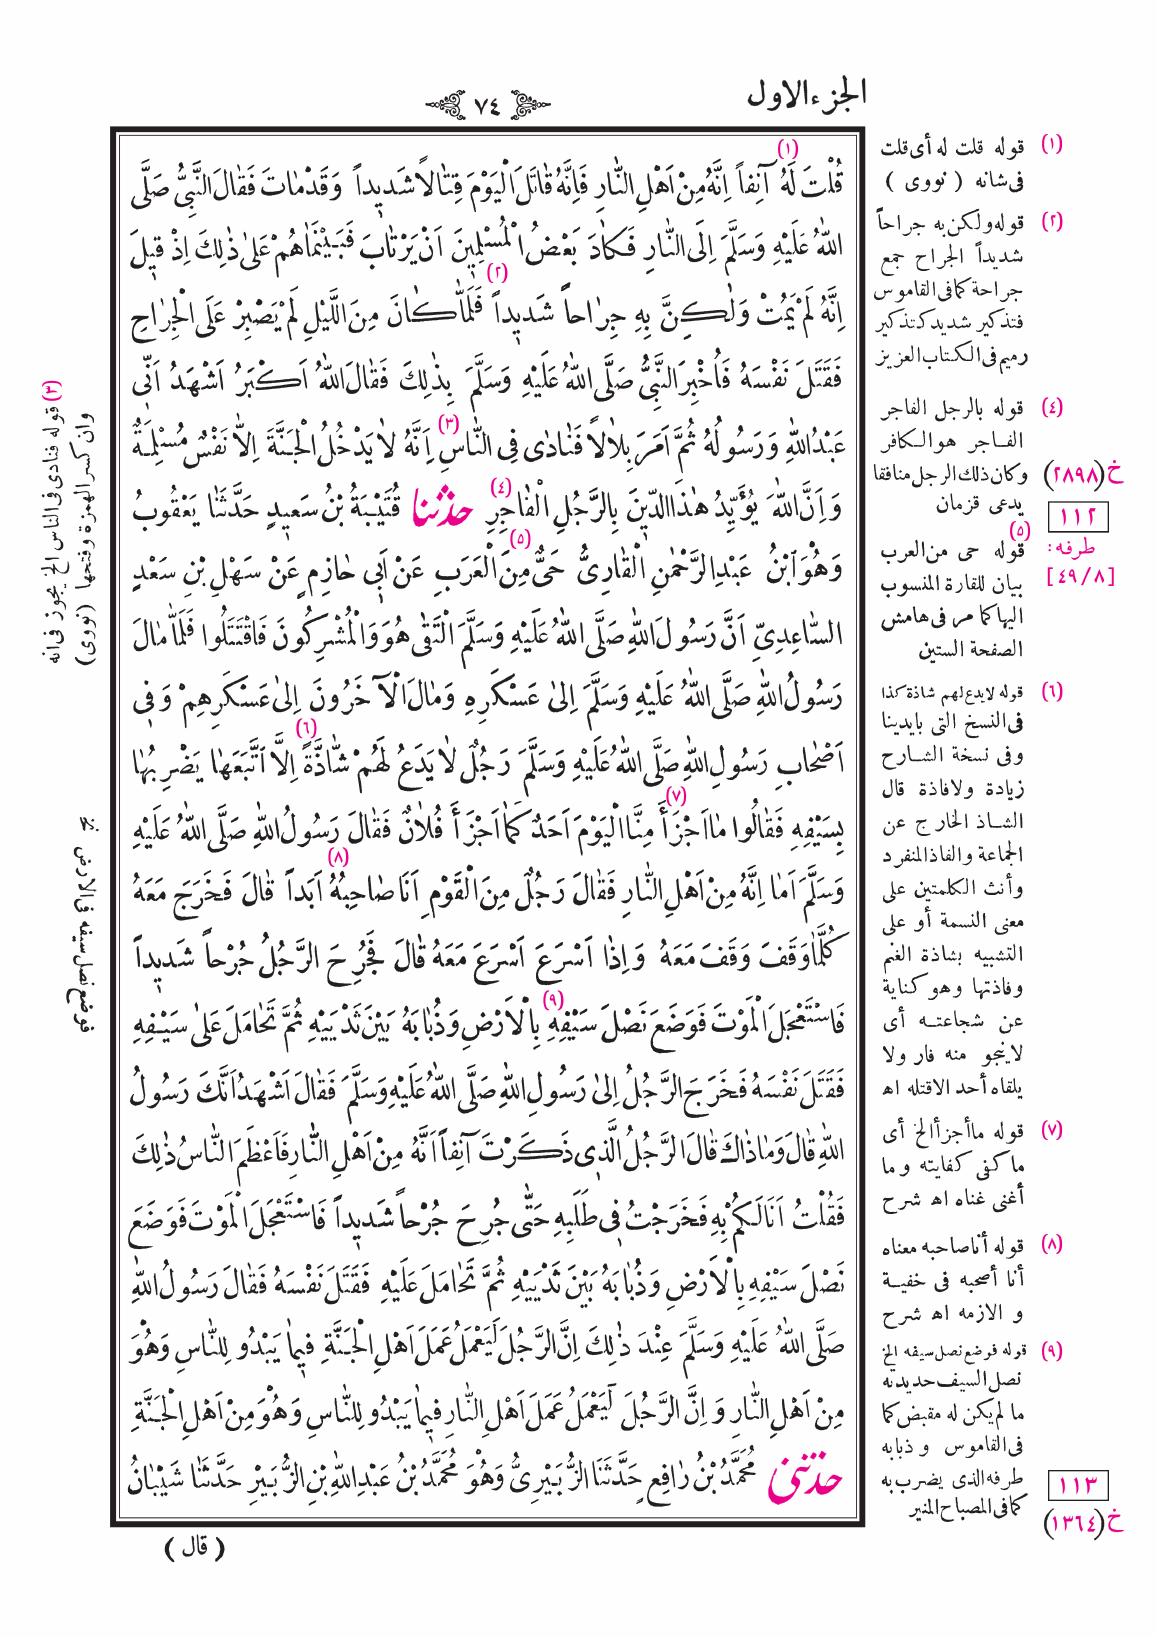 الجزء الاول
٧٤
قُلْتَ لَهُ (١) آنِفاً اِنَّهُ مِنْ اَهْلِ النَّارِ فَاِنَّهُ قَاتَلَ الْيَوْمَ قِتَالاً شَدِيداً وَقَدْ مَاتَ فَقَالَ النَّبِىُّ صَلَّى
اللهُ عَلَيْهِ وَسَلَّمَ اِلَى النَّارِ فَكَادَ بَعْضُ الْمُسْلِمِينَ اَنْ يَرْتَابَ فَبَيْنَمَا هُمْ عَلىٰ ذٰلِكَ اِذْ قِيلَ
اِنَّهُ لَمْ يَمُتْ وَلٰكِنَّ بِهِ جِرَاحاً (٢) شَدِيداً فَلَمَّا كَانَ مِنَ اللَّيْلِ لَمْ يَصْبِرْ عَلَى الْجِرَاحِ
فَقَتَلَ نَفْسَهُ فَاُخْبِرَ النَّبِىُّ صَلَّى اللهُ عَلَيْهِ وَسَلَّمَ بِذٰلِكَ فَقَالَ اللهُ اَكْبَرُ اَشْهَدُ اَنِّى
عَبْدُ اللهِ وَرَسُولُهُ ثُمَّ اَمَرَ بِلَالاً فَنَادٰى فِى النَّاسِ (٣) اِنَّهُ لَا يَدْخُلُ الْجَنَّةَ اِلَّا نَفْسٌ مُسْلِمَةٌ
وَاِنَّ اللهَ يُؤَيِّدُ هٰذَا الدِّينَ بِالرَّجُلِ الْفَاجِرِ (٤) حدثنا قُتَيْبَةُ بْنُ سَعِيدٍ حَدَّثَنَا يَعْقُوبُ
وَهُوَ ابْنُ عَبْدِ الرَّحْمٰنِ الْقَارِىُّ حَىٌّ مِنَ الْعَرَبِ (٥) عَنْ اَبِى حَازِمٍ عَنْ سَهْلِ بْنِ سَعْدٍ
السَّاعِدِىِّ اَنَّ رَسُولَ اللهِ صَلَّى اللهُ عَلَيْهِ وَسَلَّمَ الْتَقٰى هُوَ وَالْمُشْرِكُونَ فَاقْتَتَلُوا فَلَمَّا مَالَ
رَسُولُ اللهِ صَلَّى اللهُ عَلَيْهِ وَسَلَّمَ اِلىٰ عَسْكَرِهِ وَمَالَ الْآخَرُونَ اِلىٰ عَسْكَرِهِمْ وَفِى
اَصْحَابِ رَسُولِ اللهِ صَلَّى اللهُ عَلَيْهِ وَسَلَّمَ رَجُلٌ لَا يَدَعُ لَهُمْ شَاذَّةً (٦) اِلَّا اتَّبَعَهَا يَضْرِبُهَا
بِسَيْفِهِ فَقَالُوا مَا اَجْزَأَ (٧) مِنَّا الْيَوْمَ اَحَدٌ كَمَا اَجْزَأَ فُلَانٌ فَقَالَ رَسُولُ اللهِ صَلَّى اللهُ عَلَيْهِ
وَسَلَّمَ اَمَا اِنَّهُ مِنْ اَهْلِ النَّارِ فَقَالَ رَجُلٌ مِنَ الْقَوْمِ اَنَا صَاحِبُهُ (٨) اَبَداً قَالَ فَخَرَجَ مَعَهُ
كُلَّمَا وَقَفَ وَقَفَ مَعَهُ وَاِذَا اَسْرَعَ اَسْرَعَ مَعَهُ قَالَ فَجُرِحَ الرَّجُلُ جُرْحاً شَدِيداً
فَاسْتَعْجَلَ الْمَوْتَ فَوَضَعَ نَصْلَ سَيْفِهِ (٩) بِالْاَرْضِ وَذُبَابَهُ بَيْنَ ثَدْيَيْهِ ثُمَّ تَحَامَلَ عَلىٰ سَيْفِهِ
فَقَتَلَ نَفْسَهُ فَخَرَجَ الرَّجُلُ اِلىٰ رَسُولِ اللهِ صَلَّى اللهُ عَلَيْهِ وَسَلَّمَ فَقَالَ اَشْهَدُ اَنَّكَ رَسُولُ
اللهِ قَالَ وَمَا ذَاكَ قَالَ الرَّجُلُ الَّذِى ذَكَرْتَ آنِفاً اَنَّهُ مِنْ اَهْلِ النَّارِ فَاَعْظَمَ النَّاسُ ذٰلِكَ
فَقُلْتُ اَنَا لَكُمْ بِهِ فَخَرَجْتُ فِى طَلَبِهِ حَتّٰى جُرِحَ جُرْحاً شَدِيداً فَاسْتَعْجَلَ الْمَوْتَ فَوَضَعَ
نَصْلَ سَيْفِهِ بِالْاَرْضِ وَذُبَابَهُ بَيْنَ ثَدْيَيْهِ ثُمَّ تَحَامَلَ عَلَيْهِ فَقَتَلَ نَفْسَهُ فَقَالَ رَسُولُ اللهِ
صَلَّى اللهُ عَلَيْهِ وَسَلَّمَ عِنْدَ ذٰلِكَ اِنَّ الرَّجُلَ لَيَعْمَلُ عَمَلَ اَهْلِ الْجَنَّةِ فِيمَا يَبْدُو لِلنَّاسِ وَهُوَ
مِنْ اَهْلِ النَّارِ وَاِنَّ الرَّجُلَ لَيَعْمَلُ عَمَلَ اَهْلِ النَّارِ فِيمَا يَبْدُو لِلنَّاسِ وَهُوَ مِنْ اَهْلِ الْجَنَّةِ
حدثنى مُحَمَّدُ بْنُ رَافِعٍ حَدَّثَنَا الزُّبَيْرِىُّ وَهُوَ مُحَمَّدُ بْنُ عَبْدِ اللهِ بْنِ الزُّبَيْرِ حَدَّثَنَا شَيْبَانُ
( قال )
(١) قوله قلت له أى قلت
فى شانه ( نووى )
(٢) قوله ولكن به جراحاً
شديداً الجراح جمع
جراحة كما فى القاموس
فتذكير شديد كتذكير
رميم فى الكتاب العزيز
(٤) قوله بالرجل الفاجر
الفاجر هو الكافر
وكان ذلك الرجل منافقا
يدعى قزمان
(٥)
قوله حى من العرب
بيان للقارة المنسوب
اليها كما مر فى هامش
الصفحة الستين
(٦) قوله لا يدع لهم شاذة كذا
فى النسخ التى بايدينا
وفى نسخة الشارح
زيادة ولا فاذة قال
الشاذ الخارج عن
الجماعة والفاذ المنفرد
وأنث الكلمتين على
معنى النسمة أو على
التشبيه بشاذة الغنم
وفاذتها وهو كناية
عن شجاعته أى
لا ينجو منه فار ولا
يلقاه أحد الا قتله اه
(٧) قوله ما أجزأ الخ أى
ما كفى كفايته وما
أغنى غناه اه شرح
(٨) قوله أنا صاحبه معناه
أنا أصحبه فى خفية
و الازمه اه شرح
(٩) قوله فوضع نصل سيفه الخ
نصل السيف حديدته
ما لم يكن له مقبض كما
فى القاموس و ذبابه
طرفه الذى يضرب به
كما فى المصباح المنير
خ(٢٨٩٨)
١١٢
طرفه:
[٤٩/٨]
١١٣
خ(١٣٦٤)
(٣) قوله فنادى فى الناس الخ يجوز فى انه
وان كسر الهمزة وفتحها (نووى)
فوضع نصل سيفه فى الارض نخ